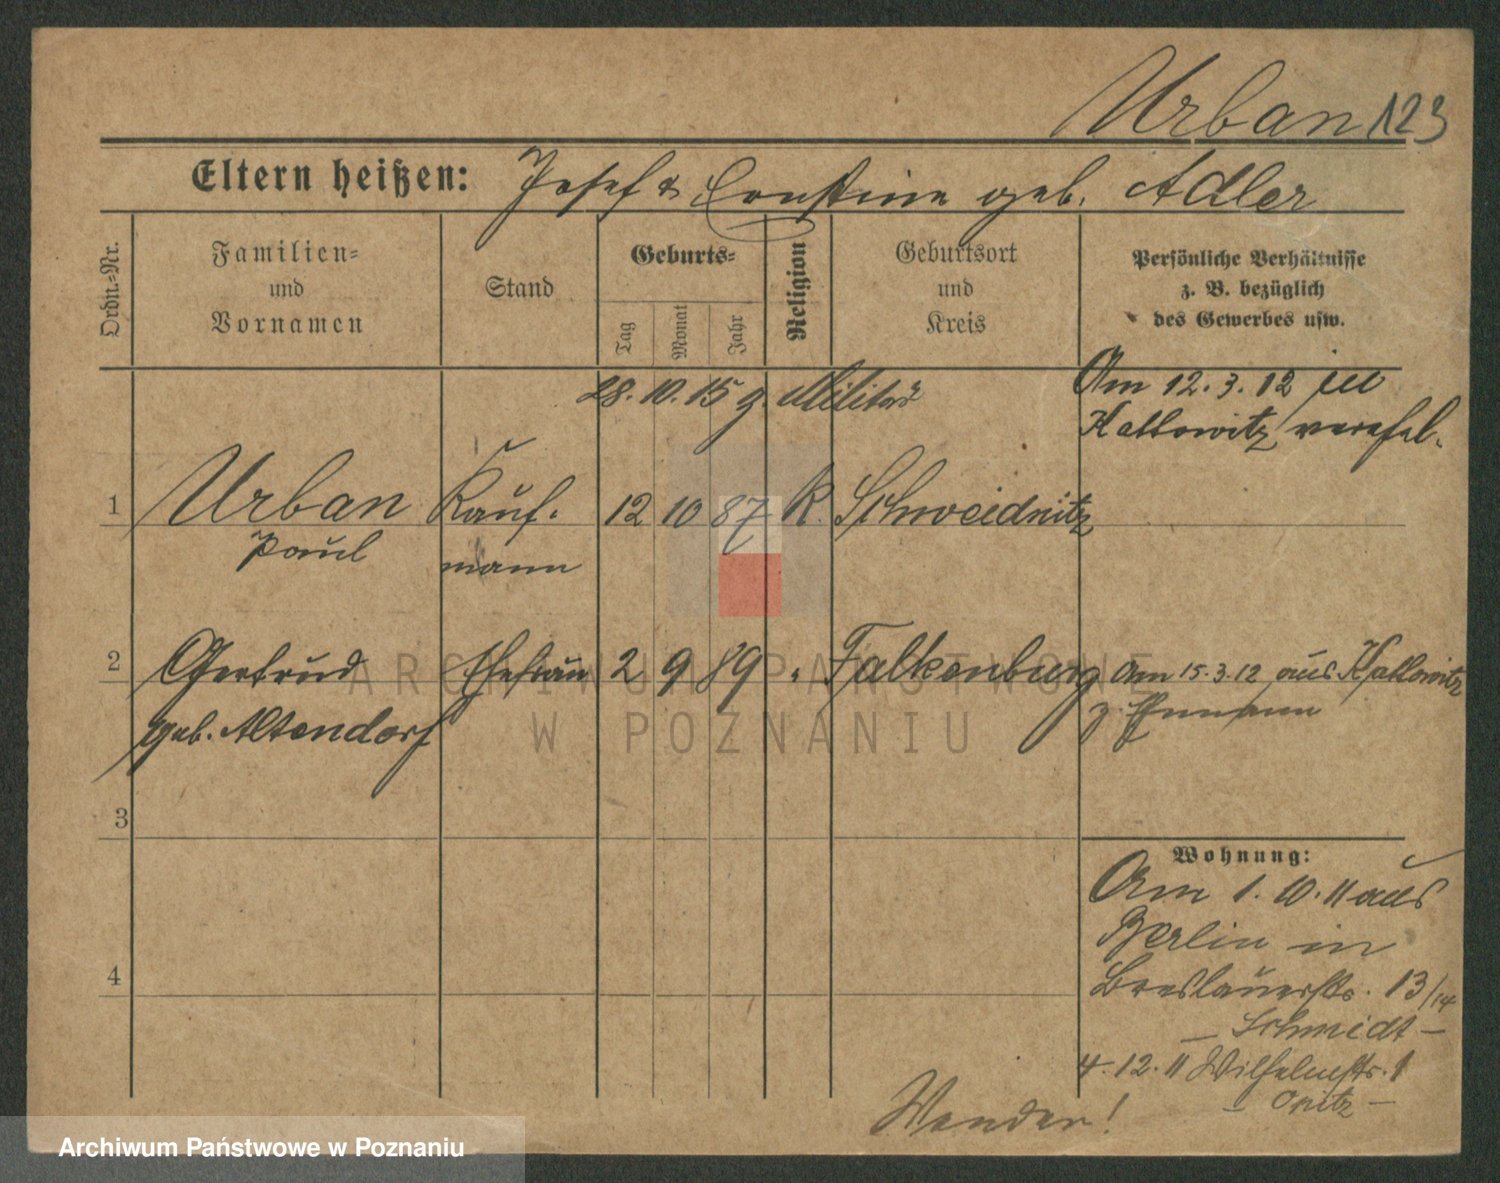 Urban 123
Eltern heißen: Josef & Ernstine geb. Adler
Ordn.-Nr.
Familien- und Vornamen
Stand
Geburts-
Tag
Monat
Jahr
Religion
Geburtsort und Kreis
Persönliche Verhältnisse
z. B. bezüglich
des Gewerbes usw.
28. 10. 15 z. Militär
Am 12. 3. 12 in
Kattowitz verehel.
1 Urban Kauf- 12 10 87 K. Schweidnitz
Paul mann
2 Gertrud Ehefrau 2 9 89 " Falkenburg Am 15. 3. 12 aus Kattowitz
geb. Altendorf z. Ehemann
3
Wohnung:
Am 1. 10. 11 aus
Berlin in
4 Breslauerstr. 13/14
– Schmidt –
4. 12. 11 Wilhelmstr. 1
– Opitz –
Wenden!
ARCHIWUM PAŃSTWOWE
W POZNANIU
Archiwum Państwowe w Poznaniu